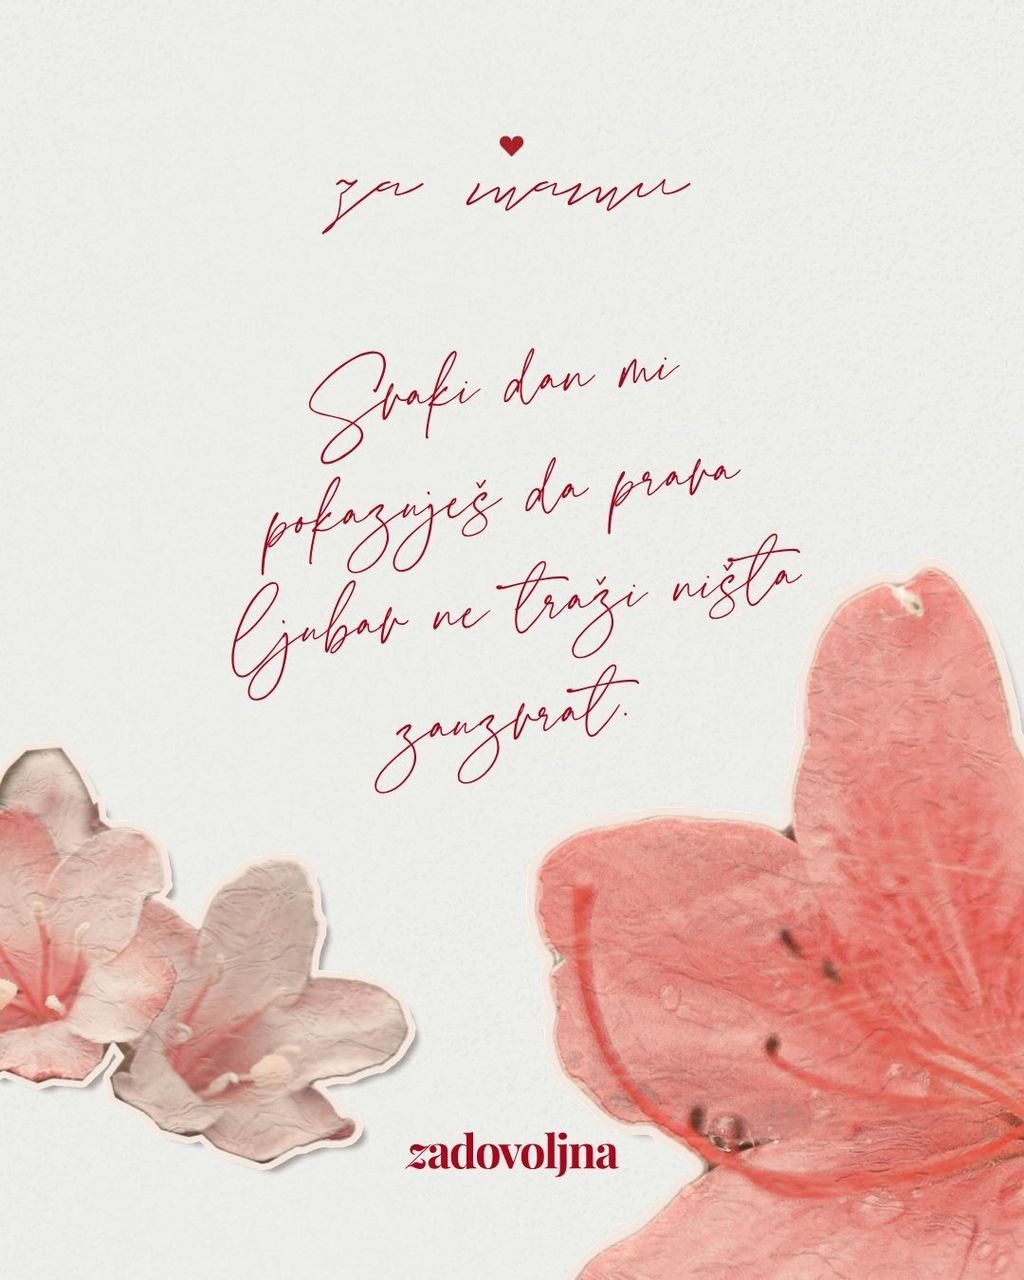 za mamu
Svaki dan mi
pokazuješ da prava
ljubav ne traži ništa
zauzvrat.
zadovoljna